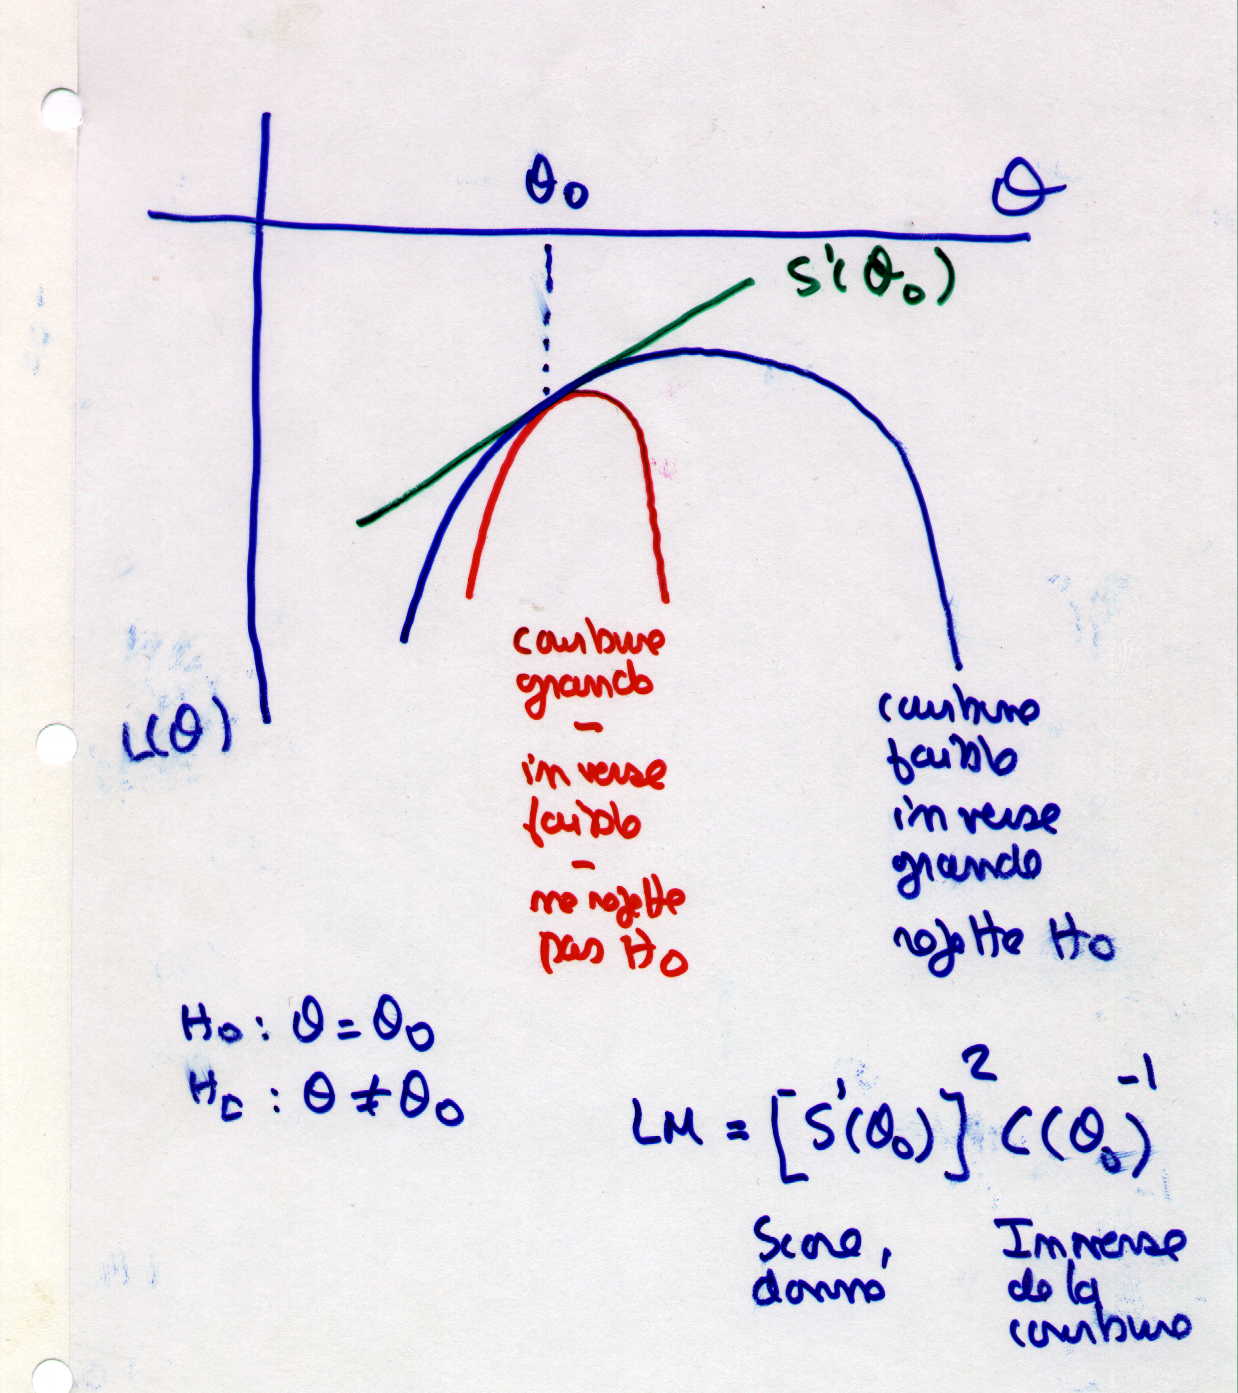 θ₀
θ
S'(θ₀)
L(θ)
courbure
grande
-
inverse
faible
-
ne rejette
pas H₀
courbure
faible
inverse
grande
rejette H₀
H₀ : θ = θ₀
: θ ≠ θ₀
LM = [S'(θ₀)]² C(θ₀)⁻¹
Score,
donné
Inverse
de la
courbure